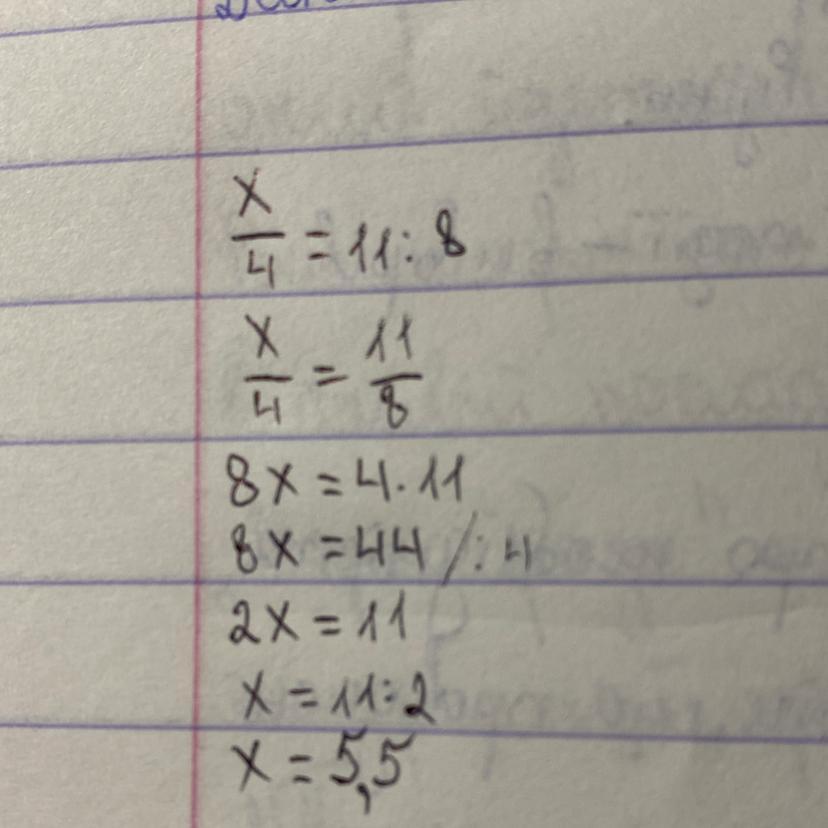 x/4 = 11 : 8
x/4 = 11/8
8x = 4 · 11
8x = 44 /: 4
2x = 11
x = 11 : 2
x = 5,5